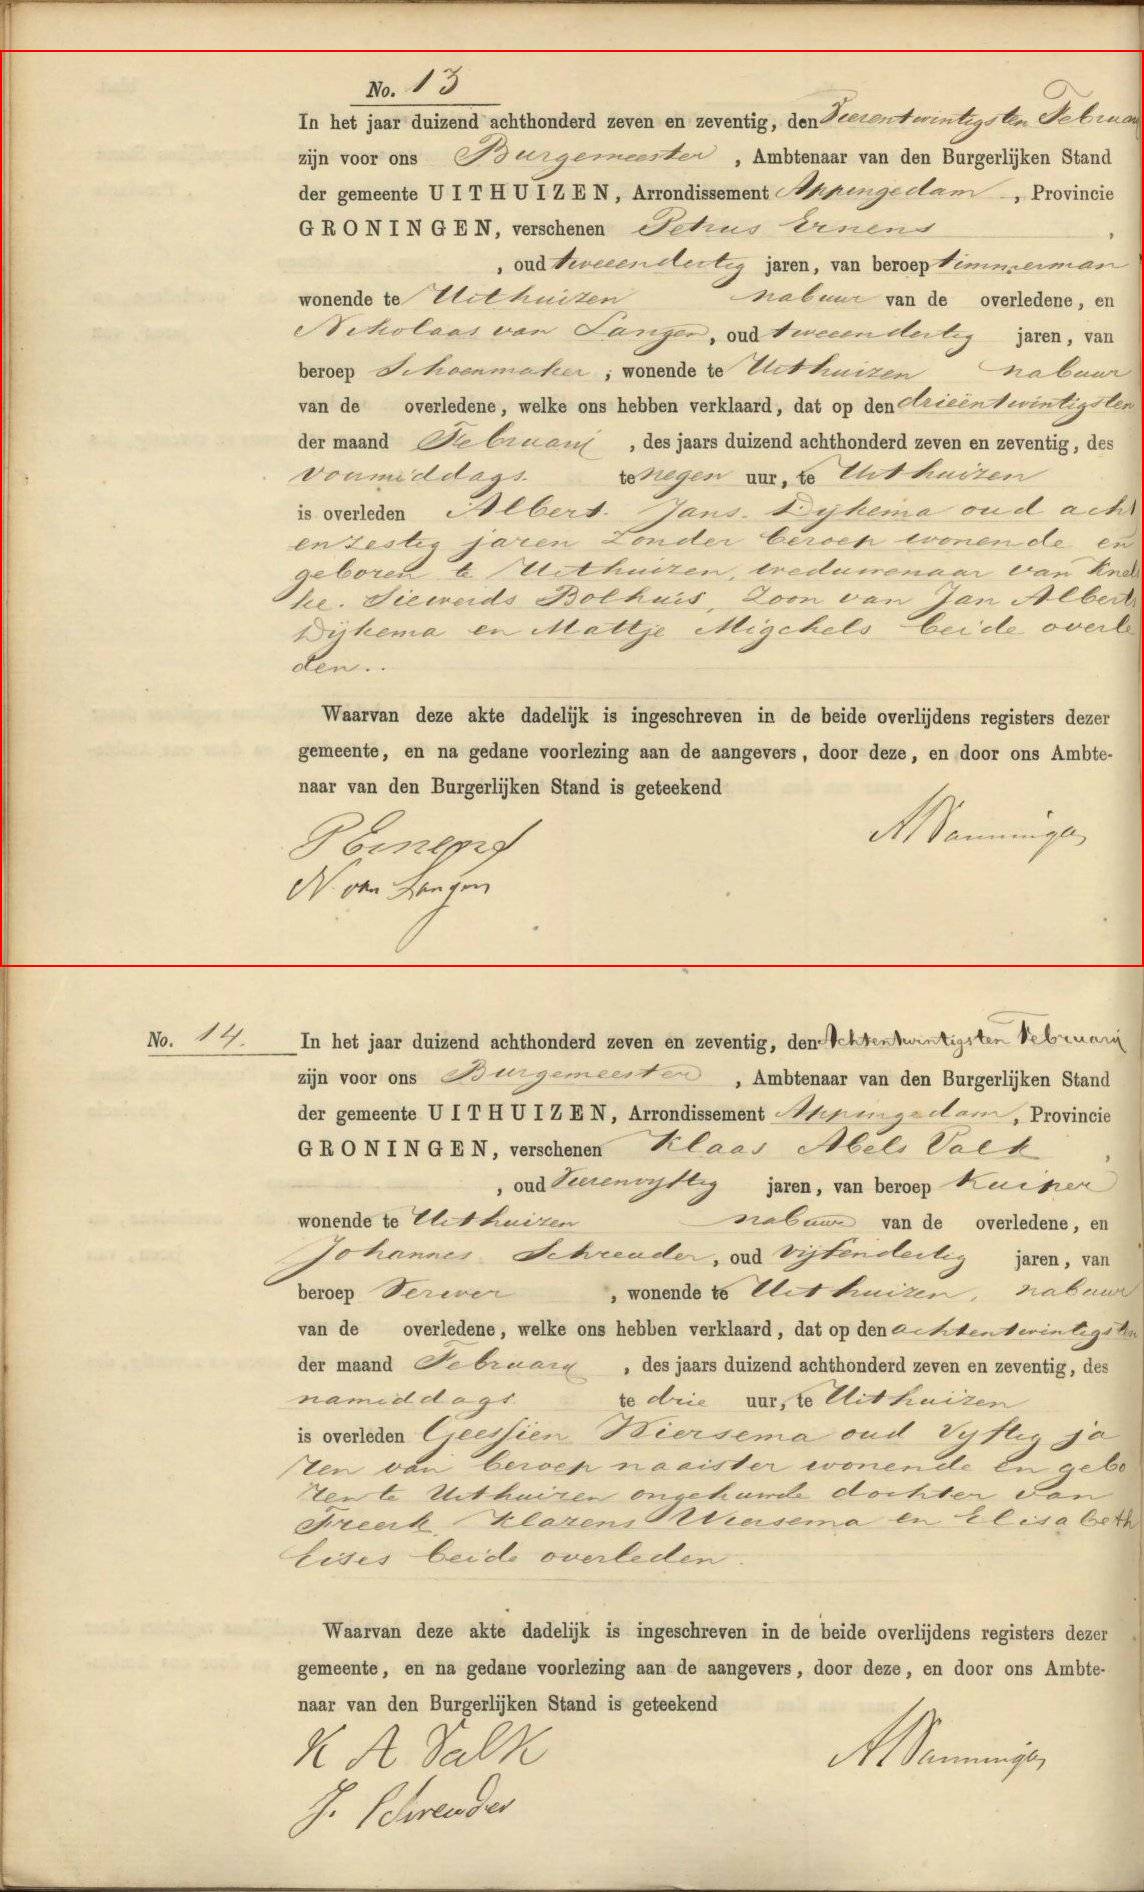 No. 13
In het jaar duizend achthonderd zeven en zeventig, den Vierentwintigsten Februarij
zijn voor ons Burgemeester, Ambtenaar van den Burgerlijken Stand
der gemeente UITHUIZEN, Arrondissement Appingedam, Provincie
GRONINGEN, verschenen Petrus Ernens,
, oud tweeendertig jaren, van beroep timmerman
wonende te Uithuizen nabuur van de overledene, en
Nikolaas van Langen, oud tweeendertig jaren, van
beroep Schoenmaker, wonende te Uithuizen nabuur
van de overledene, welke ons hebben verklaard, dat op den drieëntwintigsten
der maand Februarij, des jaars duizend achthonderd zeven en zeventig, des
voormiddags te negen uur, te Uithuizen
is overleden Albert Jans Dijkema oud acht
enzestig jaren zonder beroep wonende en
geboren te Uithuizen, weduwenaar van Knel
ke. Sieverds Bolhuis, Zoon van Jan Alberts
Dijkema en Mattje Migchels beide overle
den..
Waarvan deze akte dadelijk is ingeschreven in de beide overlijdens registers dezer
gemeente, en na gedane voorlezing aan de aangevers, door deze, en door ons Ambte-
naar van den Burgerlijken Stand is geteekend
P Ernens
N. van Langen
No. 14.
In het jaar duizend achthonderd zeven en zeventig, den Achtentwintigsten Februarij
zijn voor ons Burgemeester, Ambtenaar van den Burgerlijken Stand
der gemeente UITHUIZEN, Arrondissement Appingedam, Provincie
GRONINGEN, verschenen Klaas Abels Valk,
, oud Vierenvijftig jaren, van beroep Kuiper
wonende te Uithuizen nabuur van de overledene, en
Johannes Schreuder, oud vijfendertig jaren, van
beroep Verwer, wonende te Uithuizen, nabuur
van de overledene, welke ons hebben verklaard, dat op den achtentwintigsten
der maand Februarij, des jaars duizend achthonderd zeven en zeventig, des
namiddags te drie uur, te Uithuizen
is overleden Geessien Wiersema oud Vijftig ja
ren van beroep naaister wonende en gebo
ren te Uithuizen ongehuwde dochter van
Freerk Klazens Wiersema en Elisabeth
Eises beide overleden.
Waarvan deze akte dadelijk is ingeschreven in de beide overlijdens registers dezer
gemeente, en na gedane voorlezing aan de aangevers, door deze, en door ons Ambte-
naar van den Burgerlijken Stand is geteekend
K A Valk
J. Schreuder